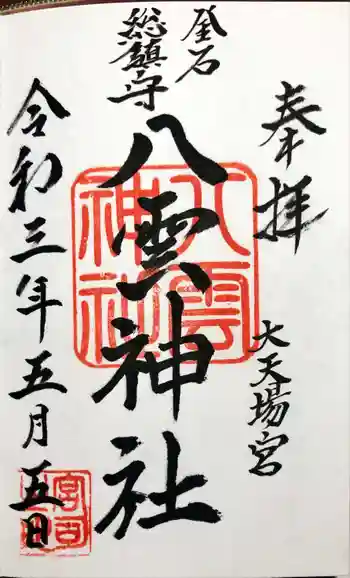 奉拝
大天場宮
釜石
総鎮守
八雲神社
八雲
神社
令和三年五月五日